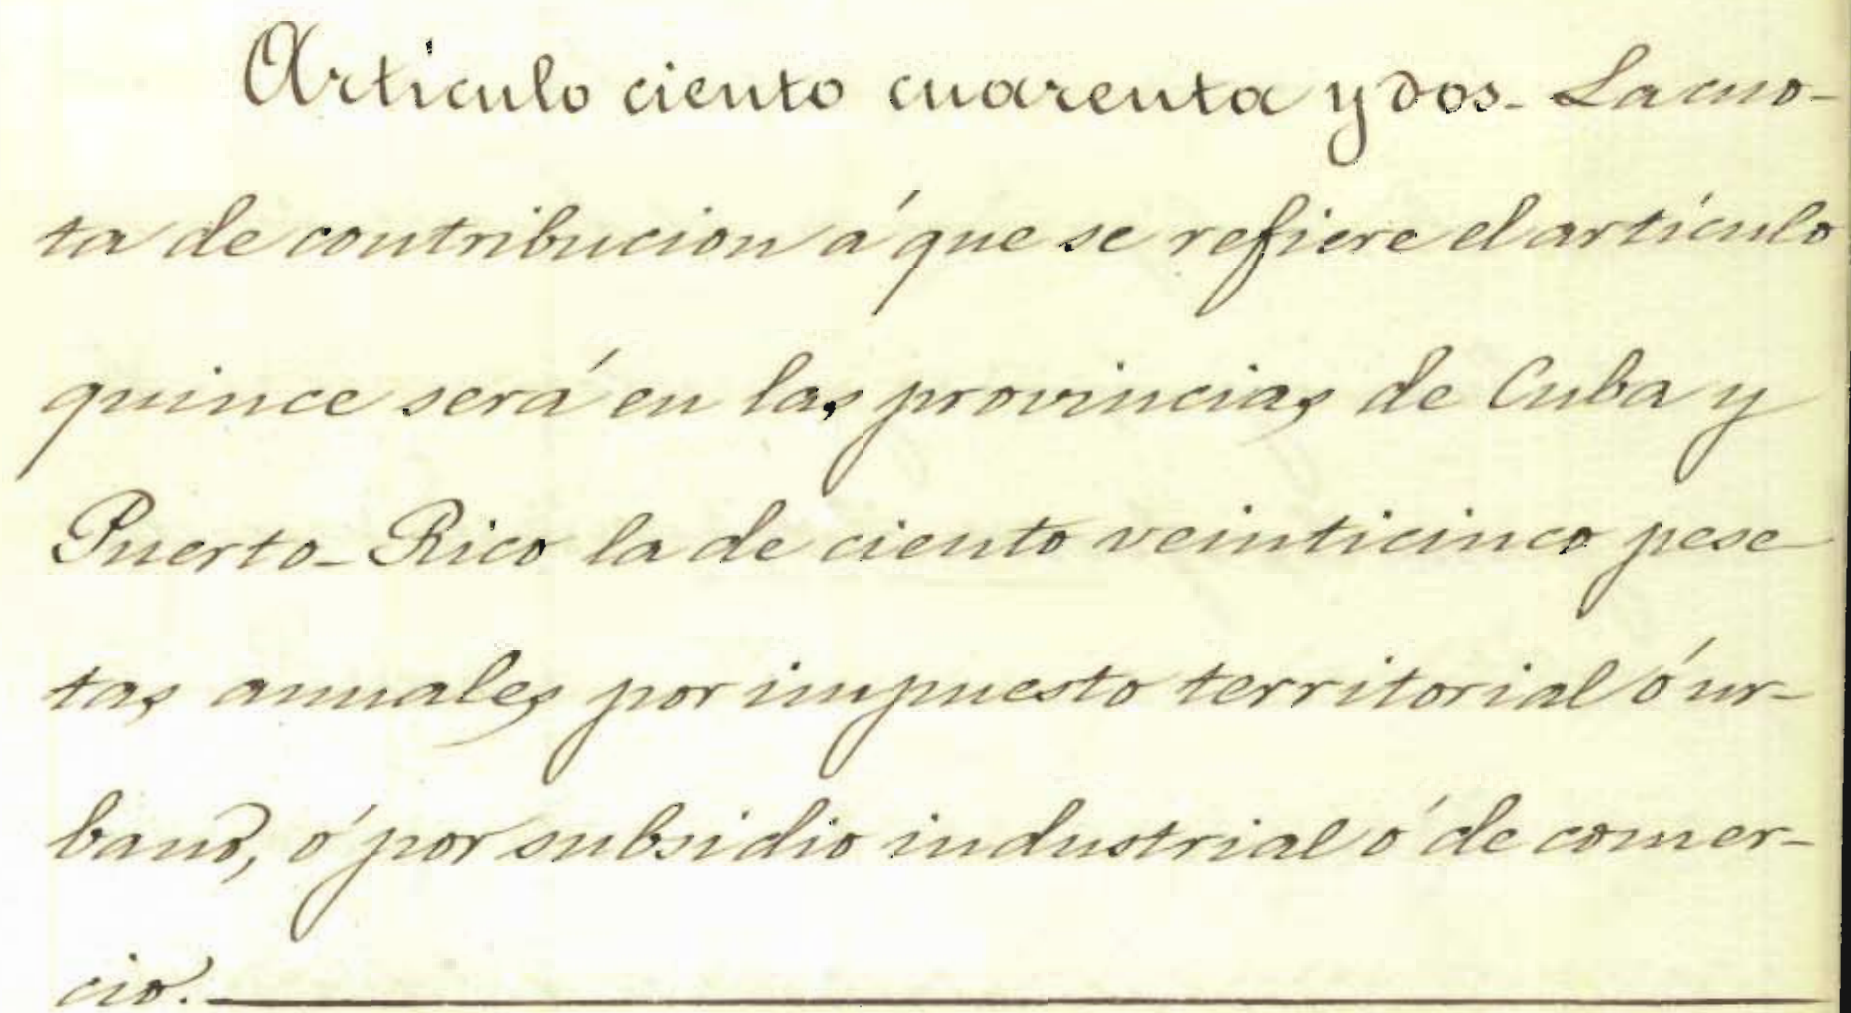 Artículo ciento cuarenta y dos. La cuo-
ta de contribucion á que se refiere el artículo
quince será en las provincias de Cuba y
Puerto-Rico la de ciento veinticinco pese
tas anuales por impuesto territorial ó ur-
bano, ó por subsidio industrial ó de comer-
cio.